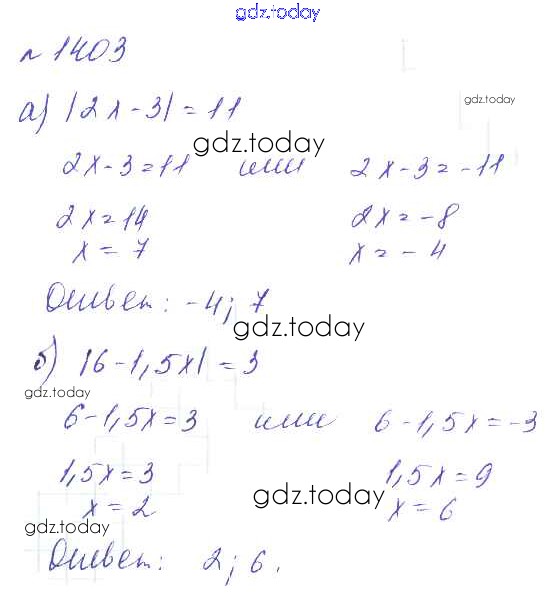 gdz.today
№ 1403
а) |2x - 3| = 11
gdz.today
gdz.today
2x - 3 = 11 или 2x - 3 = -11
2x = 14 2x = -8
x = 7 x = -4
Ответ: -4; 7
gdz.today
б) |6 - 1,5x| = 3
gdz.today
6 - 1,5x = 3 или 6 - 1,5x = -3
1,5x = 3 1,5x = 9
gdz.today
x = 2 x = 6
gdz.today
Ответ: 2; 6.